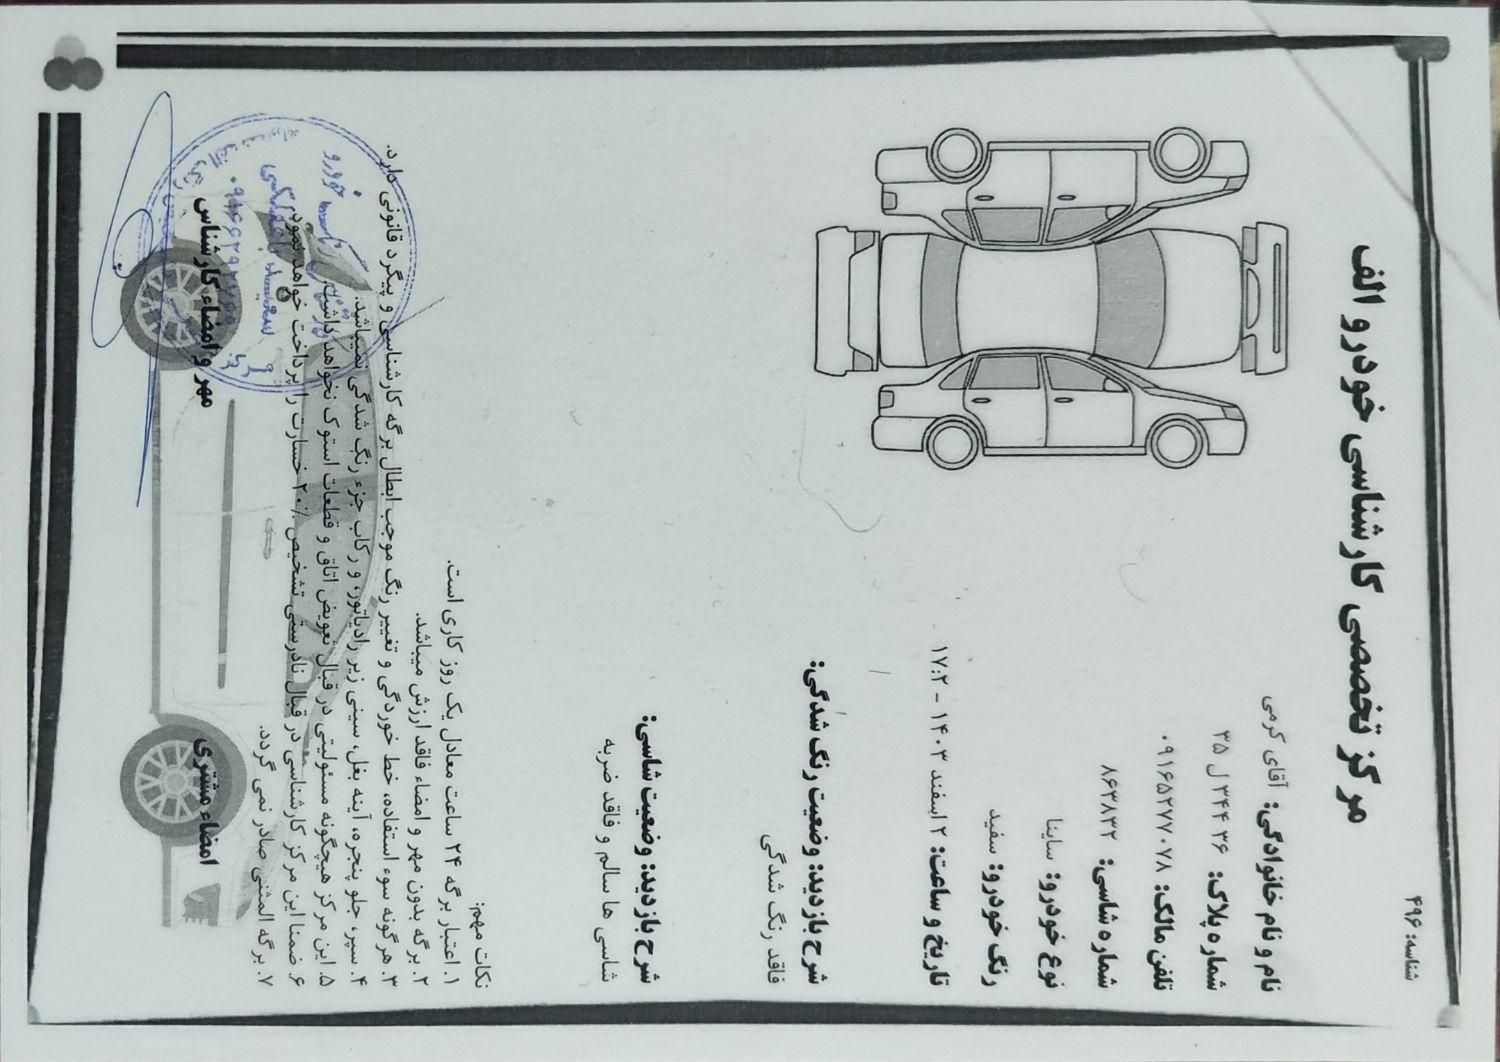 شناسه: ۴۹۶
مرکز تخصصی کارشناسی خودرو الف
نام و نام خانوادگی: آقای کرمی
شماره پلاک: ۳۶ ۳۴۴ ل ۳۵
تلفن مالک: ۰۹۱۶۵۲۷۷۰۷۸
شماره شاسی: ۸۶۳۸۳۲
نوع خودرو: ساینا
رنگ خودرو: سفید
تاریخ و ساعت: ۲ اسفند ۱۴۰۳ - ۱۷:۲
شرح بازدید: وضعیت رنگ شدگی:
فاقد رنگ شدگی
شرح بازدید: وضعیت شاسی:
شاسی ها سالم و فاقد ضربه
نکات مهم:
۱. اعتبار برگه ۲۴ ساعت معادل یک روز کاری است.
۲. برگه بدون مهر و امضاء فاقد ارزش میباشد.
۳. هرگونه سوء استفاده، خط خوردگی و تغییر رنگ موجب ابطال برگه کارشناسی و پیگرد قانونی دارد.
۴. سپر، جلو پنجره، آینه بغل، سینی زیر رادیاتور، و رکاب جزء رنگ شدگی نمیباشد.
۵. این مرکز هیچگونه مسئولیتی در قبال تعویض اتاق و قطعات استوک نخواهد داشت.
۶. ضمنا این مرکز کارشناسی در قبال نادرستی تشخیص ۲۰٪ خسارت را پرداخت خواهد نمود.
۷. برگه المثنی صادر نمی گردد.
امضاء مشتری
مهر و امضاء کارشناس
رنگ خودرو
سعید